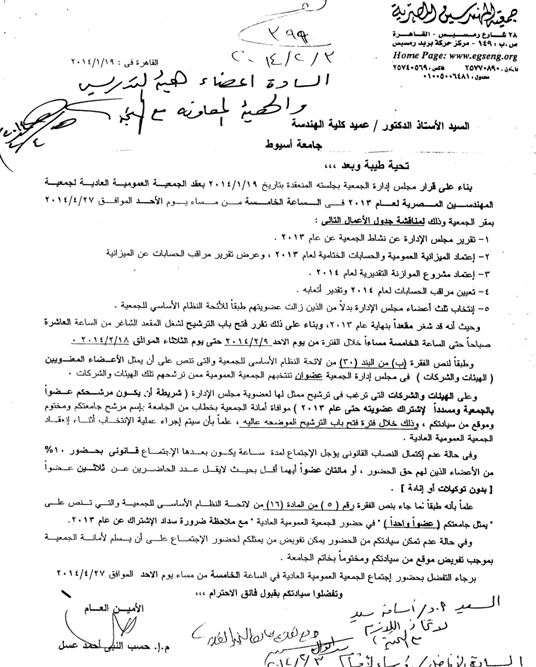 جمعية المهندسين المصرية
٢٨ شارع رمسيس - القاهرة
ص.ب : ١٤٩٠ - مركز حركة بريد رمسيس
Home Page: www.egseng.org
تليفون : ٢٥٧٧٠٨٩٠ فاكس : ٢٥٧٤٠٥٦٩
محمول : ٠١٠٠٥٠٠٦٤٨١
القاهرة في : ٢٠١٤/١/١٩
٣٩٩
٢٠١٤/٢/٣
السادة اعضاء هيئة التدريس
والهيئة المعاونة
السيد الأستاذ الدكتور / عميد كلية الهندسة
جامعة أسيوط
تحية طيبة وبعد ،،،
بناء على قرار مجلس إدارة الجمعية بجلسته المنعقدة بتاريخ ٢٠١٤/١/١٩ بعقد الجمعية العمومية العادية لجمعية
المهندسين المصرية لعام ٢٠١٣ فى الساعة الخامسة من مساء يوم الأحد الموافق ٢٠١٤/٤/٢٧
بمقر الجمعية وذلك لمناقشة جدول الأعمال التالى :
١- تقرير مجلس الإدارة عن نشاط الجمعية عن عام ٢٠١٣ .
٢- إعتماد الميزانية العمومية والحسابات الختامية لعام ٢٠١٣ ، وعرض تقرير مراقب الحسابات عن الميزانية
٣- إعتماد مشروع الموازنة التقديرية لعام ٢٠١٤ .
٤- تعيين مراقب الحسابات لعام ٢٠١٤ وتقدير أتعابه .
٥- إنتخاب ثلث أعضاء مجلس الإدارة بدلاً من الذين زالت عضويتهم طبقاً للائحة النظام الأساسي للجمعية .
وحيث أنه قد شغر مقعداً بنهاية عام ٢٠١٣، وبناء على ذلك تقرر فتح باب الترشيح لشغل المقعد الشاغر من الساعة العاشرة
صباحاً حتى الساعة الخامسة مساءاً خلال الفترة من يوم الاحد ٢٠١٤/٢/٩ حتى يوم الثلاثاء الموافق ٢٠١٤/٢/١٨ .
وطبقاً لنص الفقرة (ب) من البند (٣٠) من لائحة النظام الأساسي للجمعية والتى تنص على أن يمثل الأعضاء المعنويين
( الهيئات والشركات ) فى مجلس إدارة الجمعية عضوان تنتخبهم الجمعية العمومية ممن ترشحهم تلك الهيئات والشركات .
وعلى الهيئات والشركات التى ترغب فى ترشيح ممثل لها لعضوية مجلس الإدارة ( شريطة أن يكون مرشحكم عضواً
بالجمعية ومسدداً لإشتراك عضويته حتى عام ٢٠١٣ ) موافاة أمانة الجمعية بخطاب من الجامعة بإسم مرشح جامعتكم ومختوم
وموقع من سيادتكم ، وذلك خلال فترة فتح باب الترشيح الموضحه عاليه ، علماً بأن سيتم إجراء عملية الإنتخاب أثناء إنعقاد
الجمعية العمومية العادية .
وفى حالة عدم إكتمال النصاب القانونى يؤجل الإجتماع لمدة ساعة يكون بعدها الإجتماع قانونى بحضور ١٠%
من الأعضاء الذين لهم حق الحضور ، أو مائتان عضواً أيهما أقل بحيث لايقل عدد الحاضرين عن ثلاثين عضواً
[ بدون توكيلات أو إنابة ] .
علماً بأنه طبقاً لما جاء بنص الفقرة رقم (٥) من المادة (١٦) من لائحة النظام الأساسى للجمعية والتي تنص على
" يمثل جامعتكم ( عضواً واحداً ) " فى حضور الجمعية العمومية العادية " مع ملاحظة ضرورة سداد الإشتراك عن عام ٢٠١٣.
وفي حالة عدم تمكن سيادتكم من الحضور يمكن تفويض من يمثلكم لحضور الإجتماع على أن يسلم لأمانة الجمعية
بموجب تفويض موقع من سيادتكم ومختوماً بخاتم الجامعة .
برجاء التفضل بحضور إجتماع الجمعية العمومية العادية في الساعة الخامسة من مساء يوم الاحد الموافق ٢٠١٤/٤/٢٧
وتفضلوا سيادتكم بقبول فائق الاحترام ،،،
الأمين العام
م.أ. حسب النبى أحمد عسل
السيد أ.د/ أسامة سيد
٢٠١٤/٢/٣